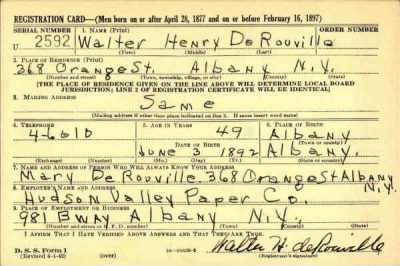 REGISTRATION CARD—(Men born on or after April 28, 1877 and on or before February 16, 1897)
SERIAL NUMBER 1. NAME (Print) ORDER NUMBER
U 2592 Walter Henry DeRouville
(First) (Middle) (Last)
2. PLACE OF RESIDENCE (Print)
368 Orange St. Albany N.Y.
(Number and street) (Town, township, village, or city) (County) (State)
[THE PLACE OF RESIDENCE GIVEN ON THE LINE ABOVE WILL DETERMINE LOCAL BOARD
JURISDICTION; LINE 2 OF REGISTRATION CERTIFICATE WILL BE IDENTICAL]
3. MAILING ADDRESS
Same
(Mailing address if other than place indicated on line 2. If same insert word same)
4. TELEPHONE 5. AGE IN YEARS 6. PLACE OF BIRTH
4-6610 49 Albany
DATE OF BIRTH (Town or county)
June 3 1892 Albany.
(Exchange) (Number) (Mo.) (Day) (Yr.) (State or country)
7. NAME AND ADDRESS OF PERSON WHO WILL ALWAYS KNOW YOUR ADDRESS
Mary DeRouville 368 Orange St Albany N.Y.
8. EMPLOYER'S NAME AND ADDRESS
Hudson Valley Paper Co.
9. PLACE OF EMPLOYMENT OR BUSINESS
981 Bway Albany N.Y.
(Number and street or R. F. D. number) (Town) (County) (State)
I AFFIRM THAT I HAVE VERIFIED ABOVE ANSWERS AND THAT THEY ARE TRUE.
D. S. S. Form 1
(Revised 4-1-42) (over) Walter H. deRouville
(Registrant's signature)